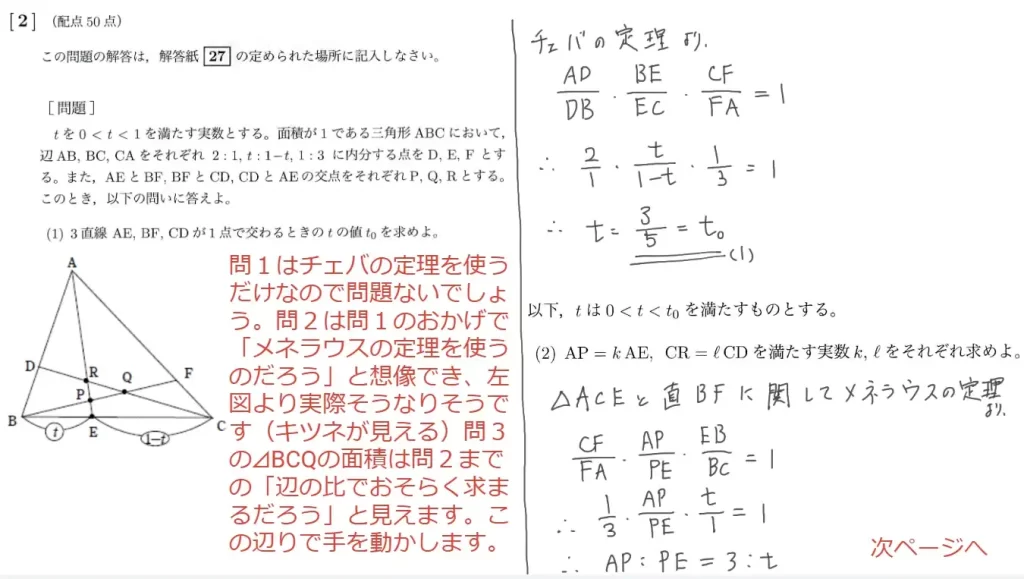 [2] (配点 50 点)
この問題の解答は,解答紙 27 の定められた場所に記入しなさい。
[問題]
t を 0 < t < 1 を満たす実数とする。面積が 1 である三角形 ABC において,
辺 AB, BC, CA をそれぞれ 2 : 1, t : 1−t, 1 : 3 に内分する点を D, E, F とす
る。また,AE と BF, BF と CD, CD と AE の交点をそれぞれ P, Q, R とする。
このとき,以下の問いに答えよ。
(1) 3 直線 AE, BF, CD が 1 点で交わるときの t の値 t₀ を求めよ。
A
D
R
Q
F
P
B
E
C
t
1−t
問1はチェバの定理を使う
だけなので問題ないでしょ
う。問2は問1のおかげで
「メネラウスの定理を使う
のだろう」と想像でき、左
図より実際そうなりそうで
す(キツネが見える)問3
の⊿BCQの面積は問2まで
の「辺の比でおそらく求ま
るだろう」と見えます。こ
の辺りで手を動かします。
チェバの定理より.
AD/DB · BE/EC · CF/FA = 1
∴ 2/1 · t/1−t · 1/3 = 1
∴ t = 3/5 = t₀ (1)
以下,t は 0 < t < t₀ を満たすものとする。
(2) AP = k AE, CR = ℓ CD を満たす実数 k, ℓ をそれぞれ求めよ。
△ACEと直BFに関してメネラウスの定理
より.
CF/FA · AP/PE · EB/BC = 1
∴ 1/3 · AP/PE · t/1 = 1
∴ AP : PE = 3 : t
次ページへ